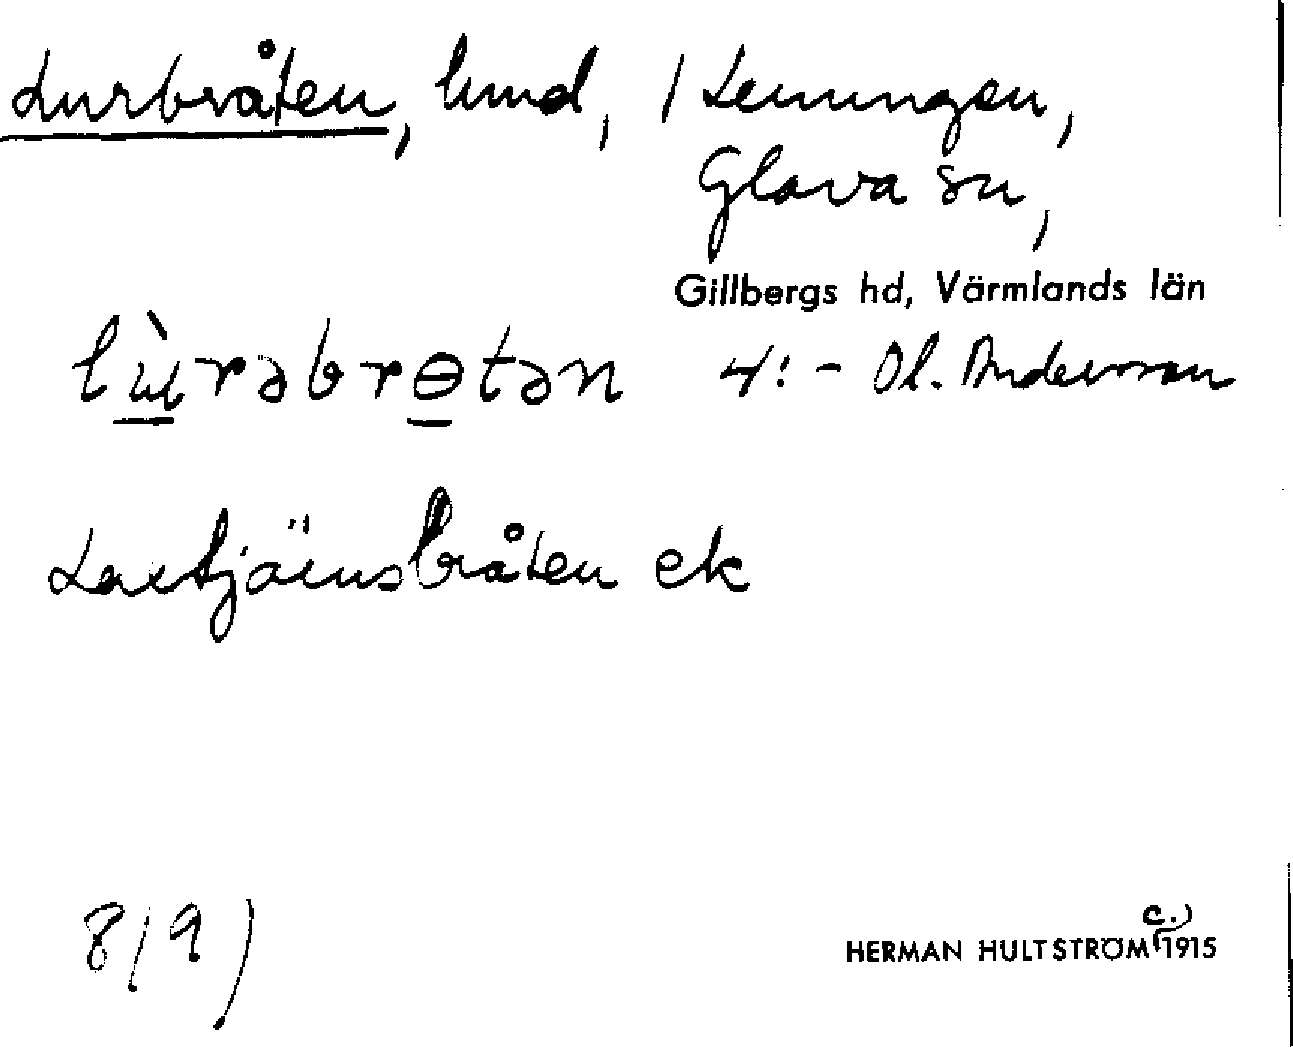 Lurbråten, lund, / Lenungen,
Glava sn,
Gillbergs hd, Värmlands län
lɯ̀rəbrɵtən 4: - Ol. Andersson
bråten ek
8(9)
c.)
HERMAN HULTSTRÖM 1915